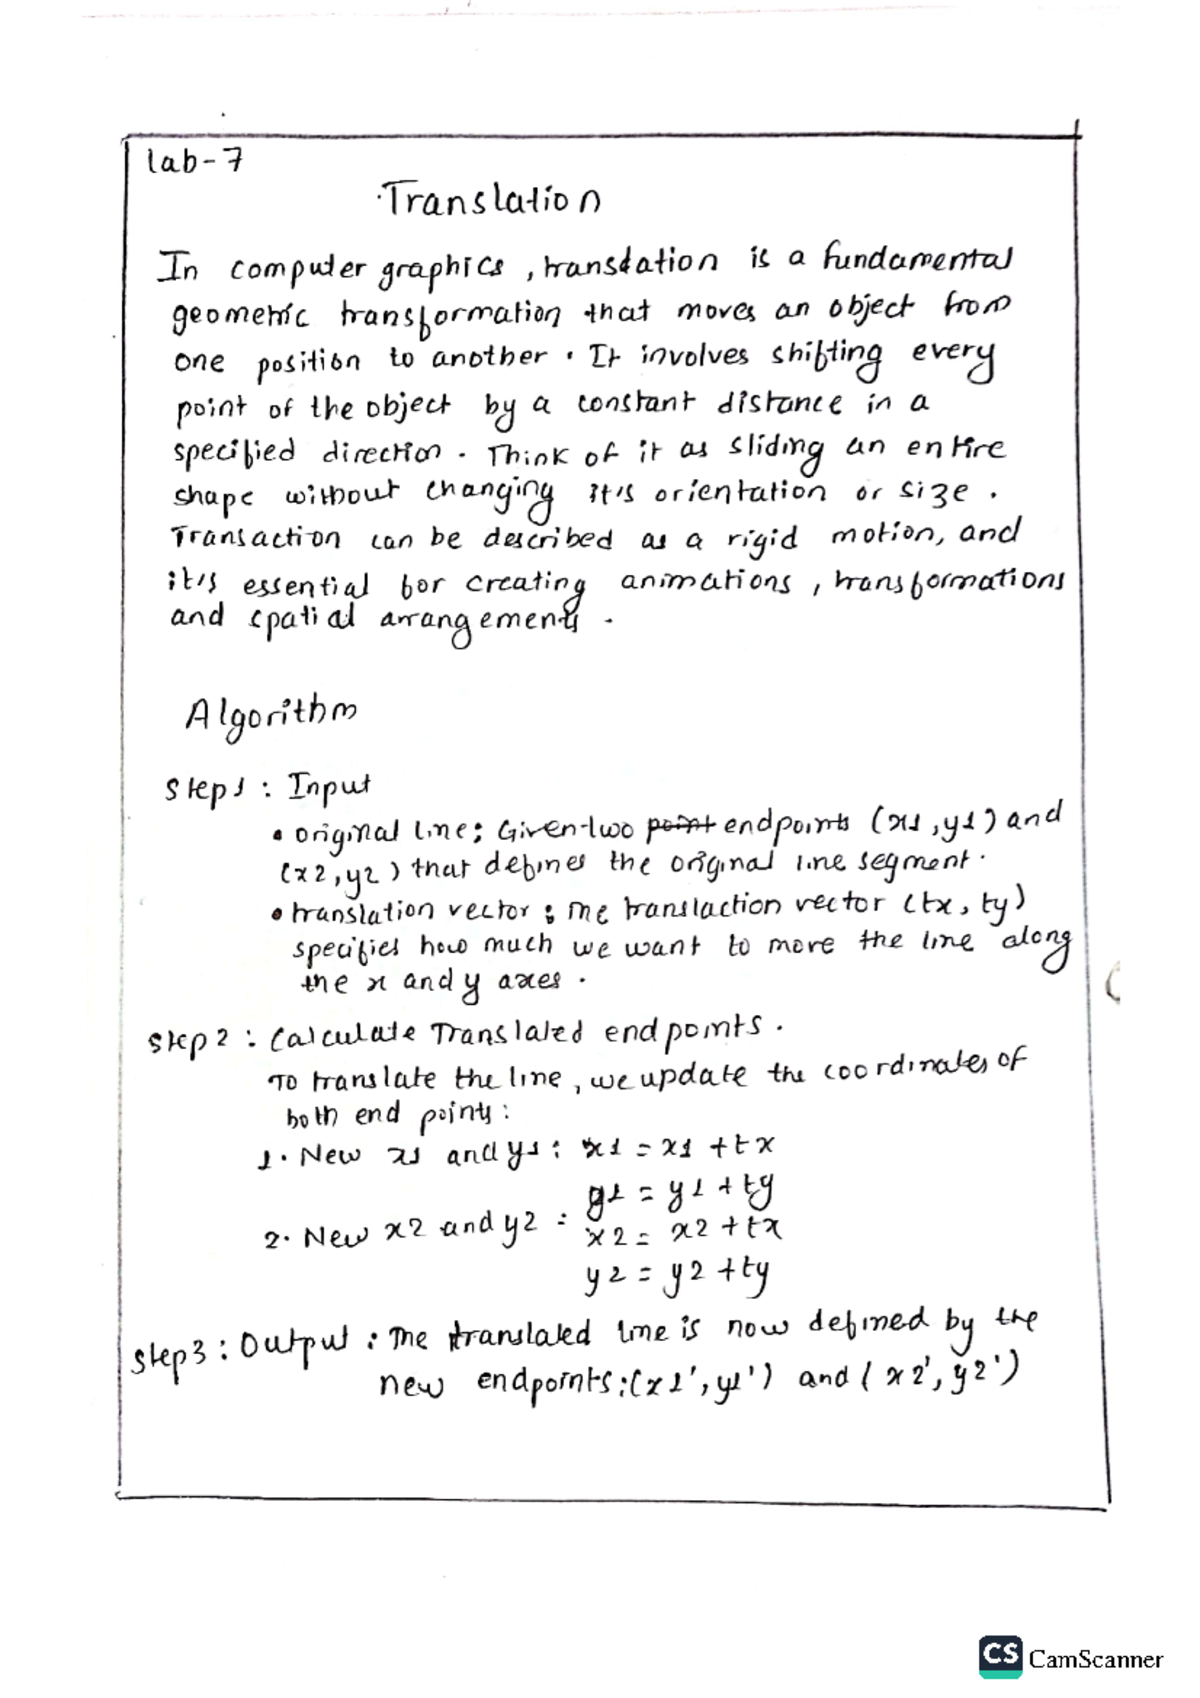 lab-7
Translation
In computer graphics, translation is a fundamental
geometric transformation that moves an object from
one position to another. It involves shifting every
point of the object by a constant distance in a
specified direction. Think of it as sliding an entire
shape without changing it's orientation or size.
Transaction can be described as a rigid motion, and
it's essential for creating animations, transformations
and spatial arrangements.
Algorithm
Step1: Input
• original line: Given two point endpoints (x1,y1) and
(x2,y2) that defines the original line segment.
• translation vector: The translaction vector (tx, ty)
specifies how much we want to move the line along
the x and y axes.
Step2: Calculate Translated endpoints.
To translate the line, we update the coordinates of
both end points:
1. New x1 and y1: x1 = x1 + tx
y1 = y1 + ty
2. New x2 and y2: x2 = x2 + tx
y2 = y2 + ty
Step3: Output: The translated line is now defined by the
new endpoints: (x1', y1') and (x2', y2')
CS CamScanner